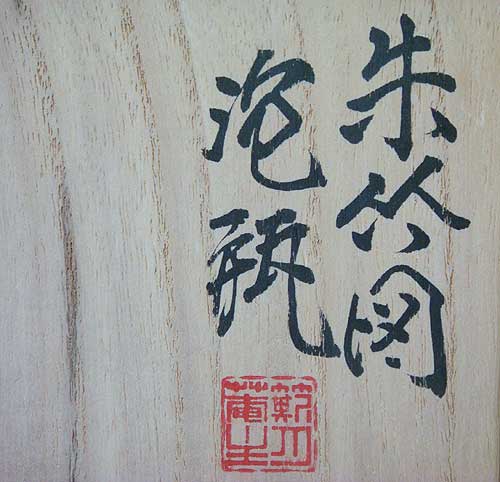 朱竹図
泡瓶